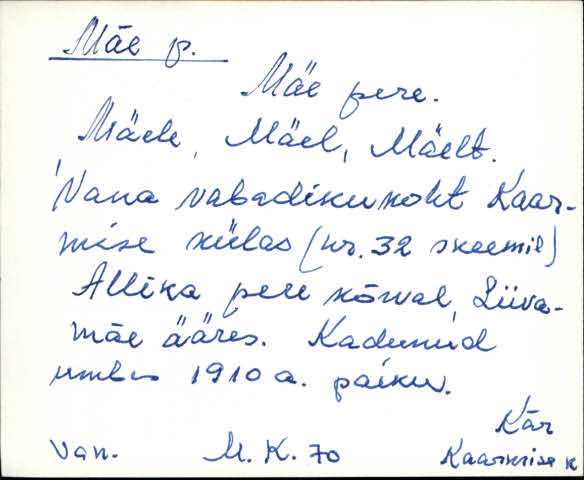 Mäe p.
Mäe pere.
Mäele, Mäel, Mäelt.
Vana vabadikukoht Kaar-
mise külas (nr. 32 skeemil)
Allika pere kõrval, Liiva-
mäe ääres. Kadunud
umbes 1910 a. paiku.
Kär
Van. M. K. 70 Kaarmise k